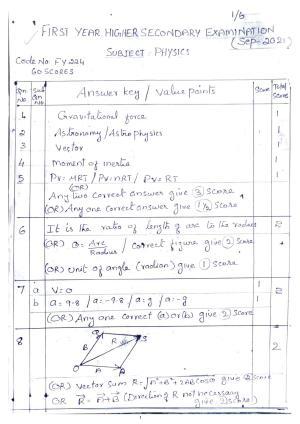 1/6
FIRST YEAR HIGHER SECONDARY EXAMINATION
(Sep-2021)
SUBJECT : PHYSICS
Code No: FY 224
60 SCORES
Qn No Sub Qn No Answer key / Value points Score Total Score
1 Gravitational force 1
2 Astronomy/Astrophysics 1
3 Vector 1
4 Moment of inertia 1
5 PV = MRT / PV = nRT / PV = RT 1
(OR)
Any two correct answer give 3 Score
(OR) Any one correct answer give 1½ Score
6 It is the ratio of length of arc to the radius 2
(OR) θ = Arc/Radius / correct figure give 2 Score
(OR) Unit of angle (radian) give 1 Score
7 a V=0 1
b a = 9.8 / a = -9.8 / a = g / a = -g 1 2
(OR) Any one correct (a) or (b) give 2 Score
8 O A B R S 2
(OR) Vector Sum R = √A²+B²+2ABcosθ give 2 Score
OR R = A+B (Direction R not necessary
give 2 Score)